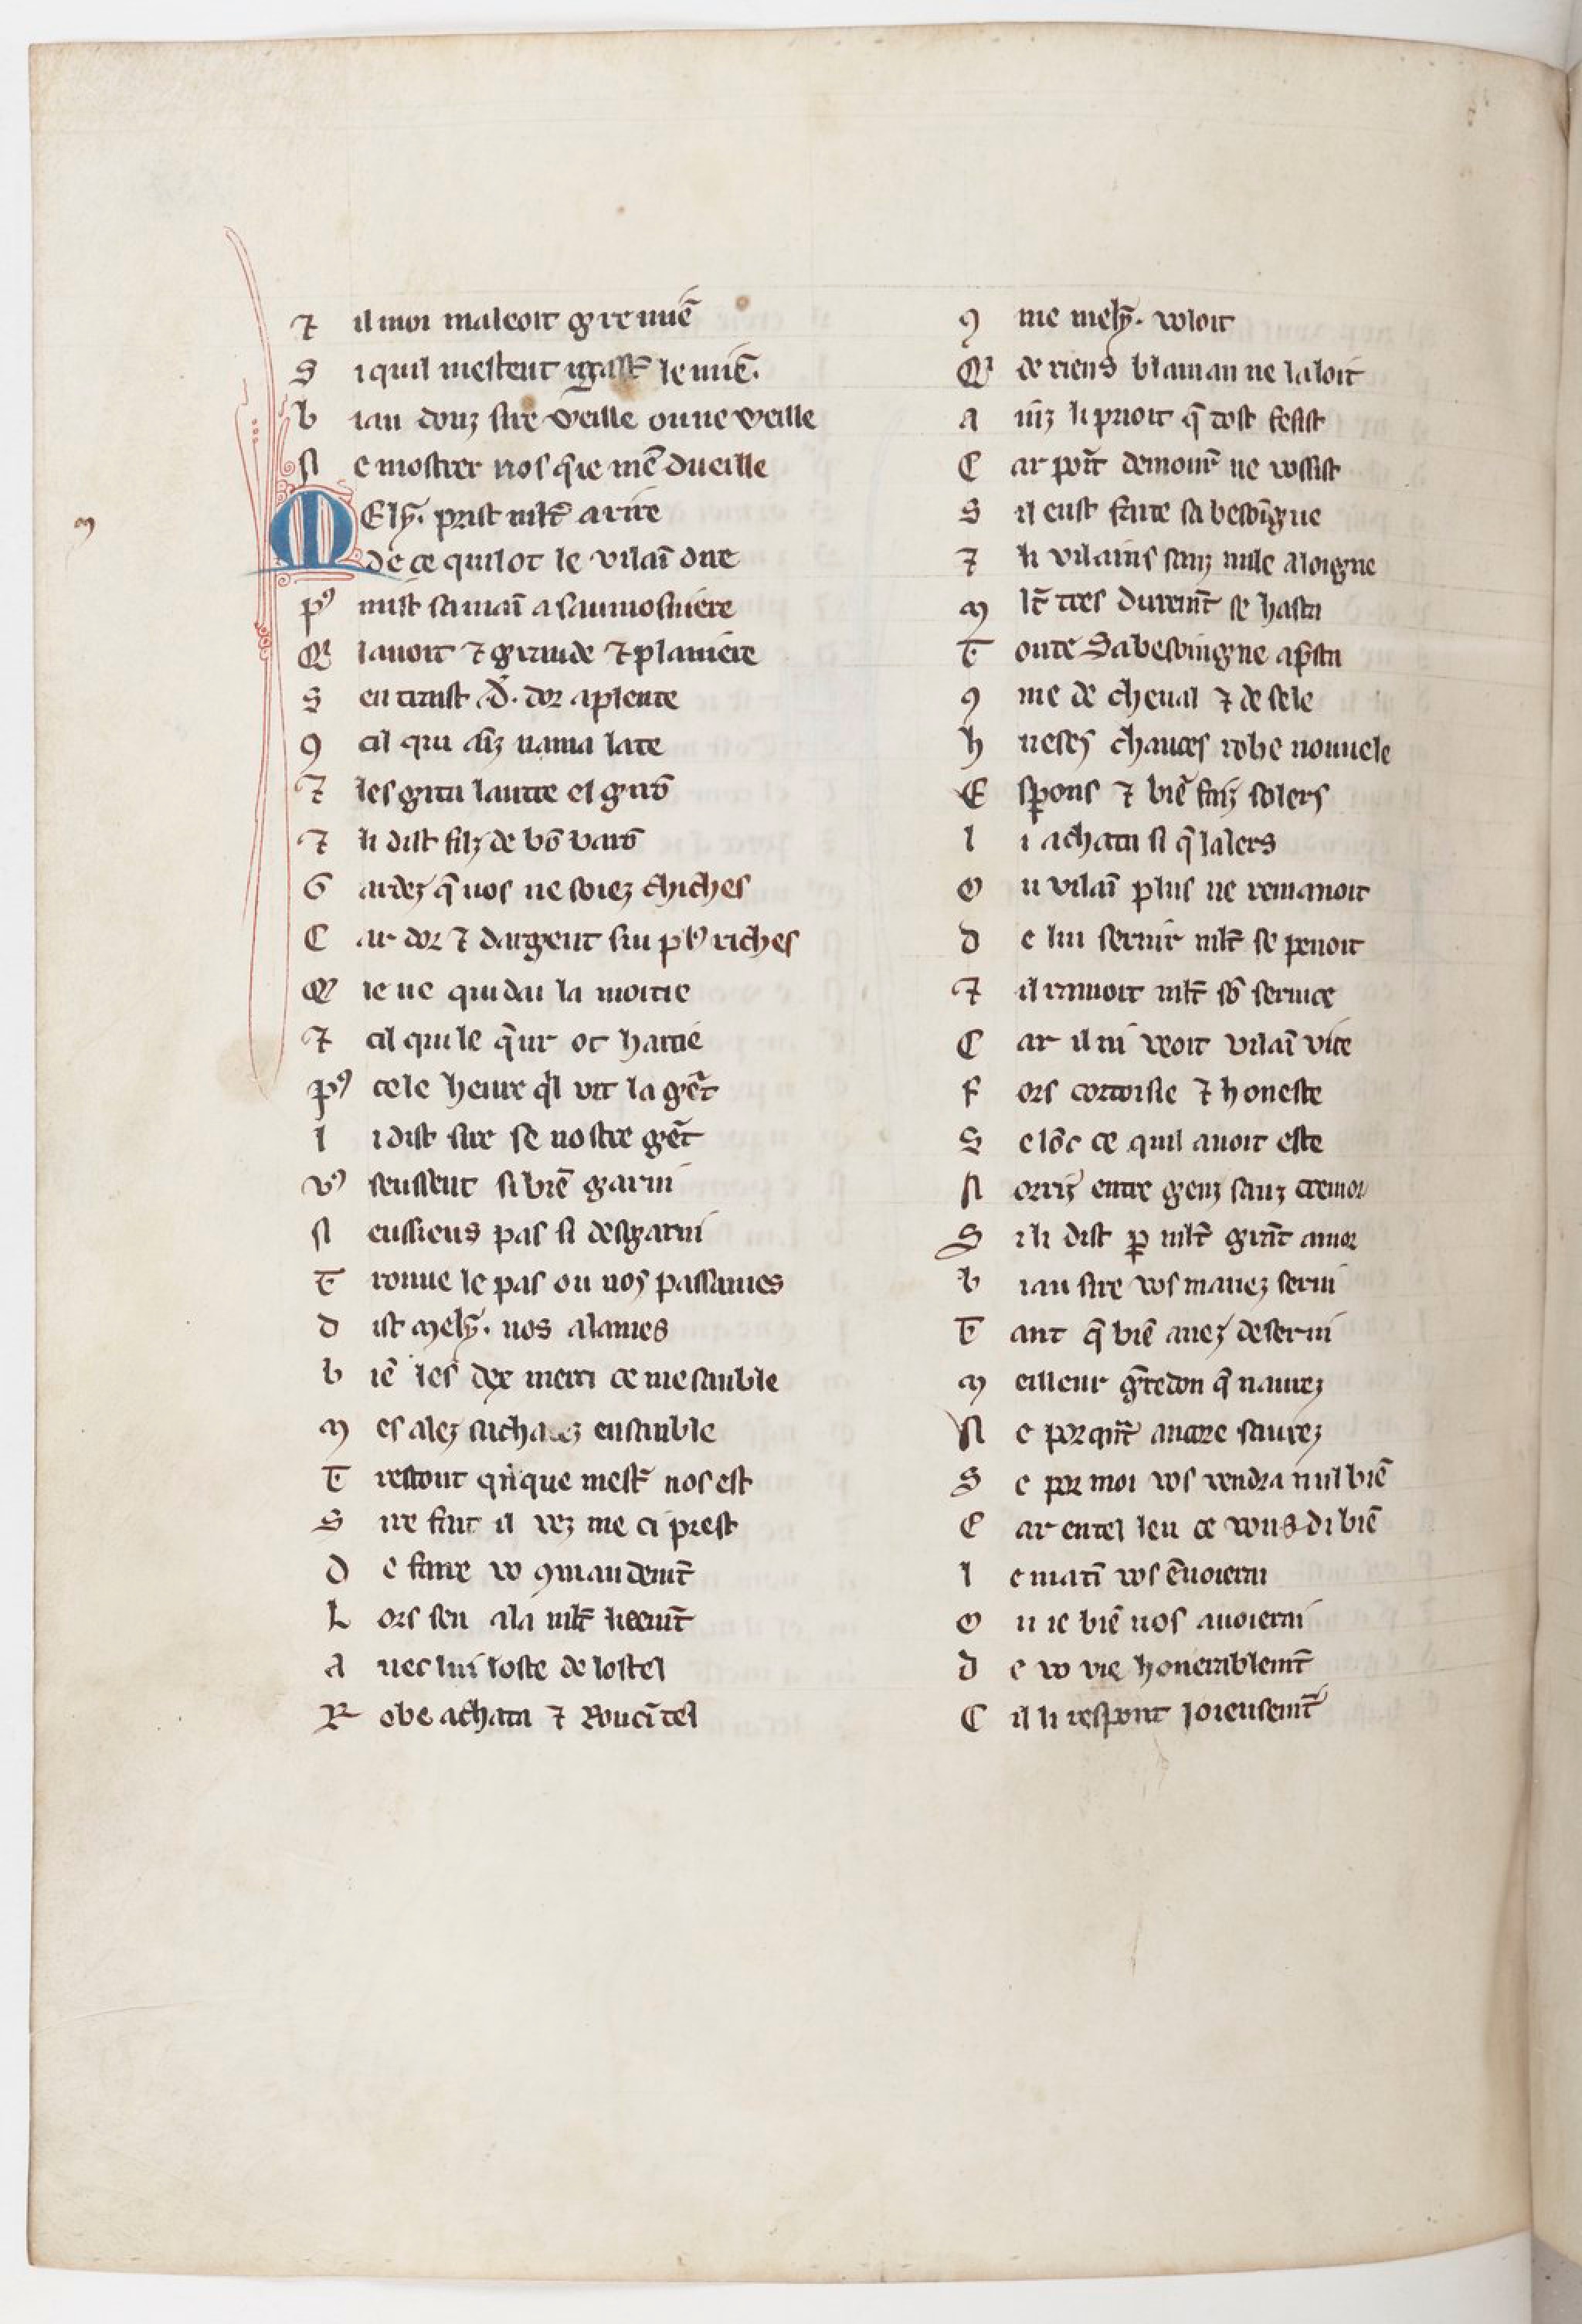 ⁊ il moi maleoit g̃re miē
S i quil mestent le miē.
b iau douz sire veille ou ne veille
N e mostrer nos q̃ ie mē dueille
m
MEly᷑. prist mlt̃ a rire
de ce quil ot le vilaī dire
pꝰ mist sa maī a saumosniere
Q lauoit ⁊ grande ⁊ planiere
S en traist .d. dor a plente
ꝯ cil qui aīz nama late
⁊ les gita lautre el girō
⁊ li dist filz de bō barō
G ardez q̃ uos ne soiez chiches
C ar dor ⁊ dargent sui pl᷒ riches
Q ie ne quidai la moitie
⁊ cil qui le q̃ur ot haitie
pꝰ cele heure q̓l vit la gēt
l i dist sire se nostre gēt
vꝰ seussent si biē garni
N eussiens pas si desgarni
T rouue le pas ou nos passames
d ist mely᷑. nos alames
b iē les dex merci ce me sanble
m es alez sachatez ensanble
T restout q̃nque mest̃ nos est
S ire fait il vez me ci prest
D e faire vo ꝯmandemt̃
L ors sen ala mlt̃ lieemt̃
A uec lui loste de lostel
R obe achata ⁊ roucī tel
ꝯ me mely᷑. voloit
Q de riens blasman ne laloit
A īnz li prioit q̃ tost fesist
C ar poīt demour̃ ne vossist
S il eust faite sa besoīgne
⁊ li vilains sanz nule aloigne
m lt̃ tres duremt̃ se hasta
T oute sa besoingne ap̃sta
ꝯ me de cheual ⁊ de sele
h ueses chauces robe nouuele
E sperons ⁊ biē faiz solers
l i achata si q̃ lalers
O u vilaī plus ne remanoit
d e lui seruir mlt̃ se penoit
⁊ il looit mlt̃ sō seruice
C ar il ni veoit vilaī vice
F ors cortoisie ⁊ honeste
S elōc ce quil auoit este
N orriz entre genz sanz cremor
S i li dist ꝑ mlt̃ grāt amor
b iau sire vos mauez serui
T ant q̃ biē auez deserui
m eilleur g̃redon q̃ naurez
N e porquāt autre saurez
S e por moi vos vendra nul biē
C ar en tel leu ce vous di biē
l e matī vos ēuoierai
O u ie biē uos auoierai
d e vo vie honerablemt̃
C il li respont ioieusemt̃